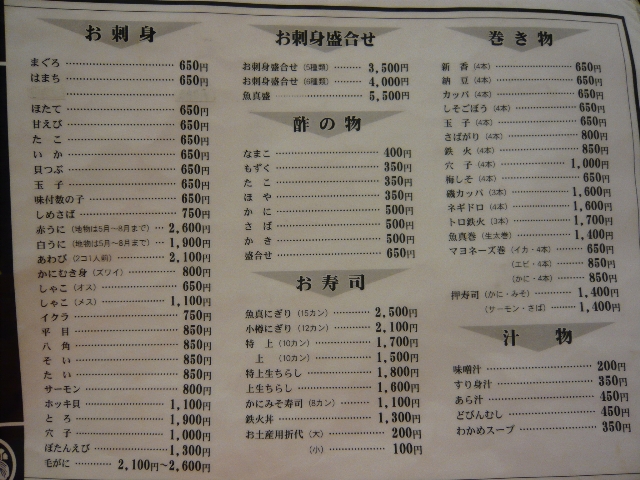 お刺身
まぐろ 650円
はまち 650円
650円
ほたて 650円
甘えび 650円
たこ 650円
いか 650円
貝つぶ 650円
玉子 650円
味付数の子 650円
しめさば 750円
赤うに（地物は5月〜8月まで） 2,600円
白うに（地物は5月〜8月まで） 1,900円
あわび（2コ1人前） 2,100円
かにむき身（ズワイ） 800円
しゃこ（オス） 650円
しゃこ（メス） 1,100円
イクラ 750円
平目 850円
八角 850円
そい 850円
たい 850円
サーモン 800円
ホッキ貝 1,100円
とろ 1,900円
穴子 1,000円
ぼたんえび 1,300円
毛がに 2,100円〜2,600円
お刺身盛合せ
お刺身盛合せ（5種類） 3,500円
お刺身盛合せ（6種類） 4,000円
魚真盛 5,500円
酢の物
なまこ 400円
もずく 350円
たこ 350円
ほや 350円
かに 500円
さば 500円
かき 500円
盛合せ 650円
お寿司
魚真にぎり（15カン） 2,500円
小樽にぎり（12カン） 2,100円
特上（10カン） 1,700円
上（10カン） 1,500円
特上生ちらし 1,800円
上生ちらし 1,600円
かにみそ寿司（8カン） 1,100円
鉄火丼 1,300円
お土産用折代（大） 200円
（小） 100円
巻き物
新香（4本） 650円
納豆（4本） 650円
カッパ（4本） 650円
しそごぼう（4本） 650円
玉子（4本） 650円
さばがり（4本） 800円
鉄火（4本） 850円
穴子（4本） 1,000円
梅しそ（4本） 650円
磯カッパ（3本） 1,600円
ネギドロ（4本） 1,600円
トロ鉄火（3本） 1,700円
魚真巻（生太巻） 1,400円
マヨネーズ巻（イカ・4本） 650円
（エビ・4本） 850円
（かに・4本） 850円
押寿司（かに・みそ） 1,400円
（サーモン・さば） 1,400円
汁物
味噌汁 200円
すり身汁 350円
あら汁 450円
どびんむし 450円
わかめスープ 350円